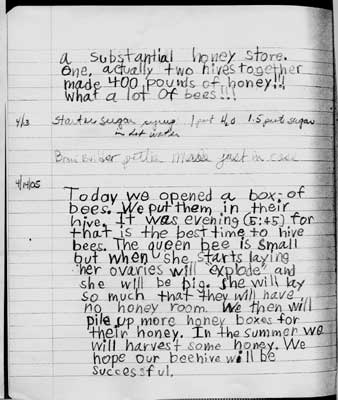 a substantial honey store.
One, actually two hives together
made 400 pounds of honey!!
What a lot of bees!!!
4/3 Starter sugar syrup 1 part H2O 1.5 part sugar
in hot water
pollen made just in case
4/14/05
Today we opened a box of
bees. We put them in their
hive. It was evening (5:45) for
that is the best time to hive
bees. The queen bee is small
but when she starts laying
"her ovaries will explode" and
she will be big. She will lay
so much that they will have
no honey room. We then will
pile up more honey boxes for
their honey. In the summer we
will harvest some honey. We
hope our beehive will be
successful.